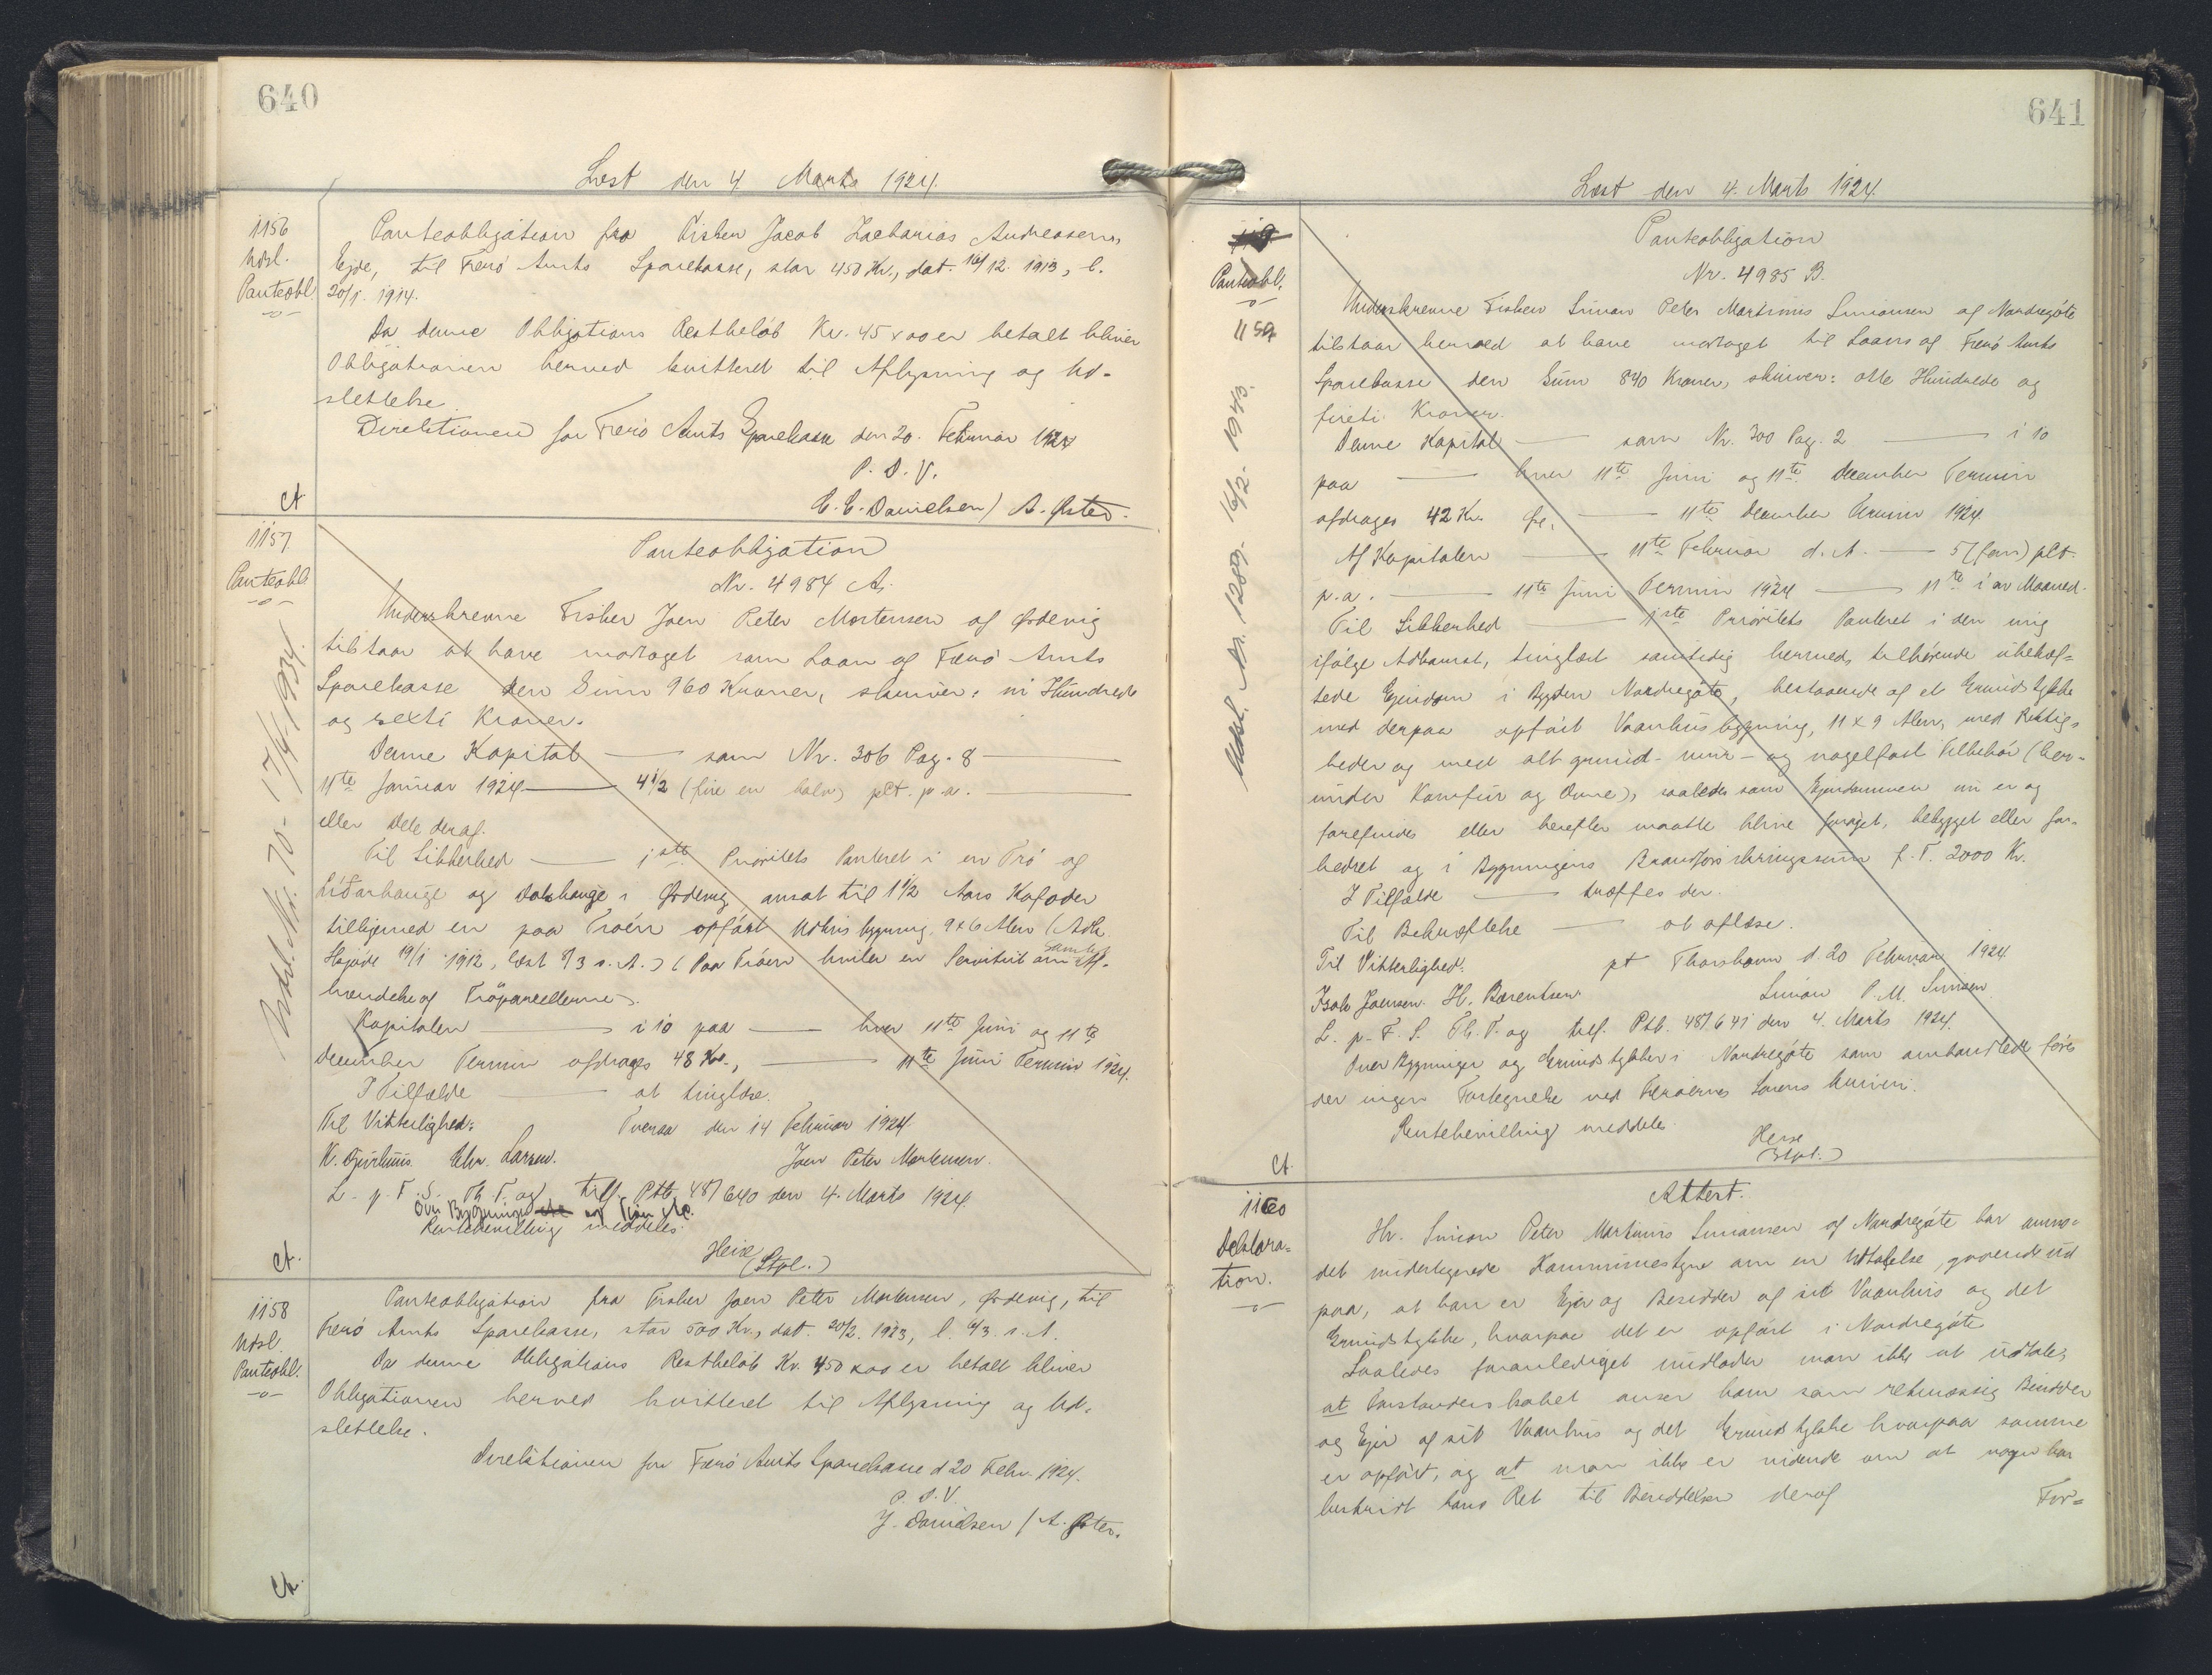 640
Læst den 4 Marts 1924.
1156
Udsl.
Panteobl.
Panteobligation fra Fisker Jacob Zacharias Andreasen,
Ejde, til Færø Amts Sparekasse, stor 450 Kr., dat. 16/12. 1913, l.
20/1. 1914.
Da denne Obligations Restbeløb Kr. 45 x 00 er betalt bliver
Obligationen herved kvitteret til Aflysning og Ud-
slettelse
Direktionen for Færø Amts Sparekasse den 20. Februar 1924
P. D. V.
C. C. Danielsen / A. Øster.
Ct
1157
Panteobl.
Udsl. Nr. 70 - 17/4 1934.
Panteobligation
Nr. 4984 A.
Underskrevne Fisker Joen Peter Mortensen af Ørdevig
tilstaar at have modtaget som Laan af Færø Amts
Sparekasse den Sum 960 Kroner, skriver: ni Hundrede
og sexti Kroner.
Denne Kapital — som Nr. 306 Pag. 8 —
11te Januar 1924 — 4 1/2 (fire en halv) pCt. p. a. —
eller Dele deraf.
Til Sikkerhed — 1ste Prioritets Panteret i en Trø og
Lidarhauge og Dalshauge i Ørdevig ansat til 1 1/2 Aars Kofoder
tilligemed en paa Trøen opført Udhusbygning, 9 x 6 Alen (Adk.
Skjøde 19/1 1912, læst 8/3 s. A.) (Paa Trøen hviler en Servitut om samlet Af-
hændelse af Trøparcellerne).
Kapitalen — i 10 paa — hver 11te Juni og 11te
December Termin afdrages 48 Kr., — 11te Juni Termin 1924.
I Tilfælde — at tinglæse.
Til Vitterlighed: Tveraa den 14 Februar 1924
Chr. Larsen. Joen Peter Mortensen.
L. p. F. S. Th. T. og tilf. Ptb. 48/640 den 4. Marts 1924.
Over Bygninger og Trøen etc.
Rentebevilling meddeles.
Heise
(Stpl.)
Ct.
1158
Udsl.
Panteobl.
Panteobligation fra Fisker Joen Peter Mortensen, Ørdevig, til
Færø Amts Sparekasse, stor 500 Kr., dat. 20/2. 1923, l. 6/3. s. A.
Da denne Obligations Restbeløb Kr. 450 x 00 er betalt bliver
Obligationen herved kvitteret til Aflysning og Ud-
slettelse.
Direktionen for Færø Amts Sparekasse d 20 Febr. 1924.
P. D. V.
J. Danielsen / A. Øster.
Ct.
641
Læst den 4. Marts 1924.
Panteobl.
1159
Udsl. Nr. 1289. 16/2. 1943.
Panteobligation
Nr. 4985 B.
Underskrevne Fisker Simon Peter Martinus Simonsen af Nordregøte
tilstaar herved at have modtaget til Laans af Færø Amts
Sparekasse den Sum 840 Kroner, skriver: otte Hundrede og
fireti Kroner.
Denne Kapital — som Nr. 300 Pag. 2 — i 10
paa — hver 11te Juni og 11te December Termin
afdrages 42 Kr. Øre, — 11te December Termin 1924.
Af Kapitalen — 11te Februar d. A. — 5 (fem) pCt.
p. a. — 11te Juni Termin 1924 — 11te i av Maaned.
Til Sikkerhed — 1ste Prioritets Panteret i den mig
ifølge Adkomst, tinglæst samtidig hermed, tilhørende ubehæf-
tede Ejendom i Bygden Nordregøte, bestaaende af et Grundstykke
med derpaa opført Vaanhusbygning, 11 x 9 Alen, med Rettig-
heder og med alt grund- mur- og nagelfast Tilbehør (her-
under Komfur og Ovne), saaledes som Ejendommen nu er og
forefindes eller herefter maatte blive forøget, bebygget eller for-
bedret og i Bygningens Brandforsikringssum f. T. 2000 Kr.
I Tilfælde — træffes der.
Til Bekræftelse — at aflæse.
Til Vitterlighed: pt Thorshavn d 20 Februar 1924
Isak Joensen. H. Berentsen. Simon P. M. Simonsen
L. p. F. S. Th. T. og tilf. Ptb. 48/641 den 4. Marts 1924.
Over Bygninger og Grundstykker i Nordregøte som ombenhandlede føres
der ingen Fortegnelse ved Færøernes Sorenskriveri.
Rentebevilling meddeles.
Heise
(Stpl.)
Ct.
1160
Deklara-
tion.
Attest.
Hr. Simon Peter Martinus Simonsen af Nordregøte har anmo-
det undertegnede Kommunestyre om en Udtalelse, gaaende ud
paa, at han er Ejer og Besidder af sit Vaanhus og det
Grundstykke, hvorpaa det er opført i Nordregøte
Saaledes foranlediget undlader man ikke at udtale,
at Forstanderskabet anser ham som retmæssig Besidder
og Ejer af sit Vaanhus og det Grundstykke hvorpaa samme
er opført, og at man ikke er vidende om at nogen har
bestridt hans Ret til Besiddelsen deraf
For-